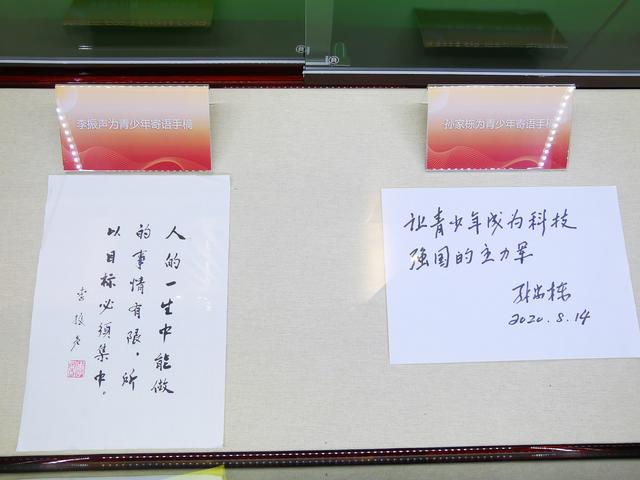 李振声为青少年寄语手稿
孙家栋为青少年寄语手稿
人的一生中能做
的事情有限，所
以目标必须集中。
李振声
让青少年成为科技
强国的主力军
孙家栋
2020.8.14